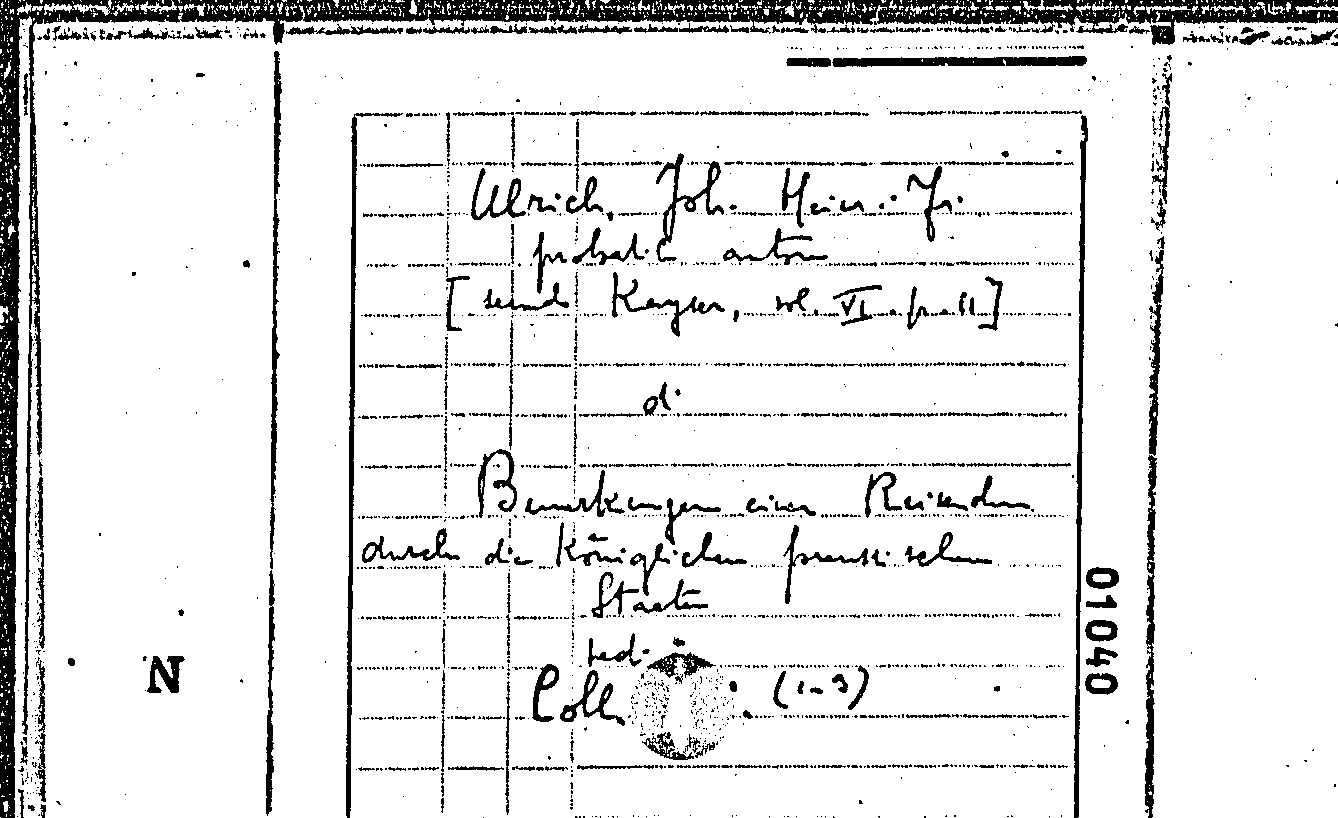 Ulrich, Joh. Heinr. Fr.
probabile autore
[secondo Kayser, vol. VI. p. 11]
di
Bemerkungen eines Reisenden
durch die Königlichen preussischen
Staaten
ved.
Coll. (1-3)
N
01040